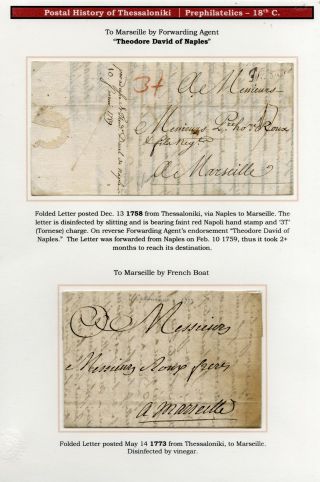 Postal History of Thessaloniki | Prephilatelics – 18th C.
To Marseille by Forwarding Agent
"Theodore David of Naples"
3+
A Messieurs
Messieurs
A Marseille
Folded Letter posted Dec. 13 1758 from Thessaloniki, via Naples to Marseille. The
letter is disinfected by slitting and is bearing faint red Napoli hand stamp and '3T'
(Tornese) charge. On reverse Forwarding Agent's endorsement "Theodore David of
Naples." The Letter was forwarded from Naples on Feb. 10 1759, thus it took 2+
months to reach its destination.
To Marseille by French Boat
A Messieurs
Messieurs Roux freres
a Marseille
Folded Letter posted May 14 1773 from Thessaloniki, to Marseille.
Disinfected by vinegar.